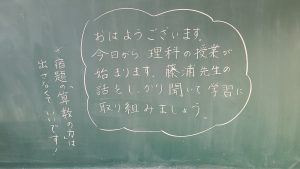 おはようございます。
今日から理科の授業が
始まります。藤浦先生の
話をしっかり聞いて学習に
取り組みましょう。
宿題の「算数の力」は
出さなくていいです！